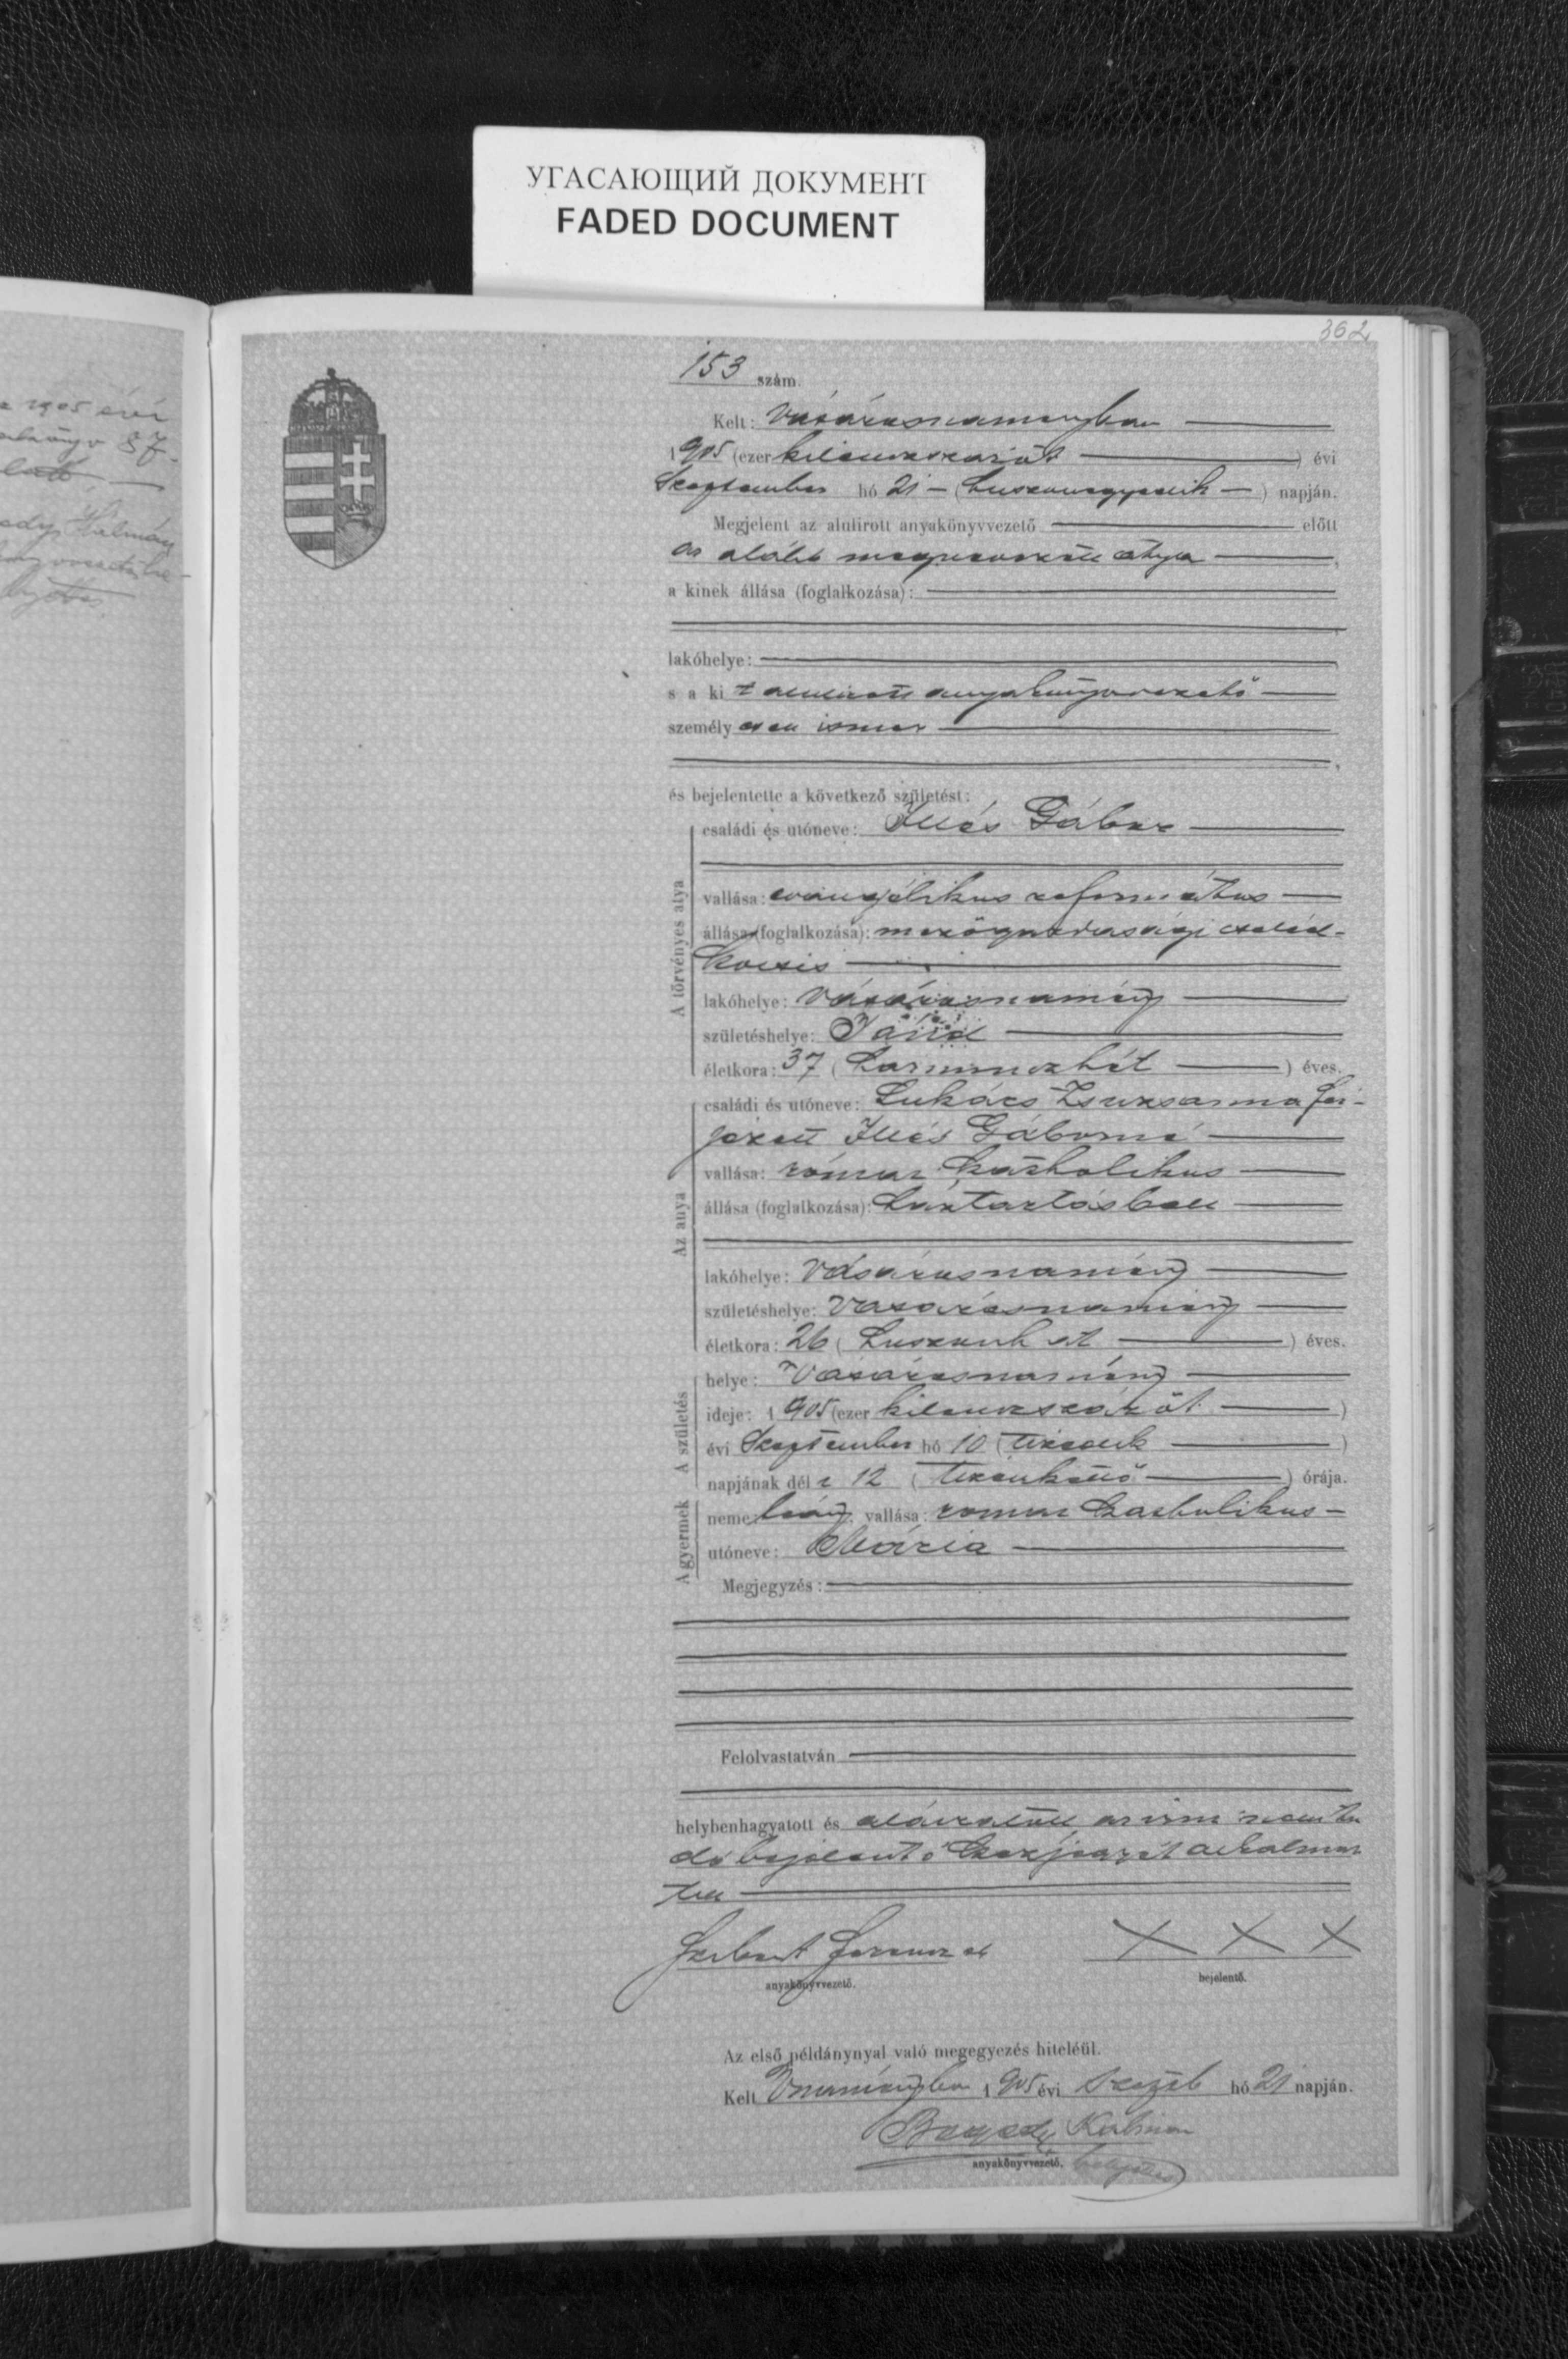 УГАСАЮЩИЙ ДОКУМЕНТ
FADED DOCUMENT
362
153 szám.
Kelt: Vásárosnaményban
1905 (ezer kilenczszázöt) évi
Szeptember hó 21 (huszonegyedik) napján.
Megjelent az alulirott anyakönyvvezető előtt
az alább megnevezett atya,
a kinek állása (foglalkozása):
lakóhelye:
s a kit alulirott anyakönyvvezető
személyesen ismer,
és bejelentette a következő születést:
A törvényes atya
családi és utóneve: Illés Gábor
vallása: evangélikus református
állása (foglalkozása): mezőgazdasági cseléd-
kocsis
lakóhelye: Vásárosnamény
születéshelye: Jánd
életkora: 37 (harminczhét) éves.
Az anya
családi és utóneve: Lukács Zsuzsanna fér-
jezett Illés Gáborné
vallása: római katholikus
állása (foglalkozása): háztartásbeli
lakóhelye: Vásárosnamény
születéshelye: Vásárosnamény
életkora: 26 (huszonhat) éves.
A születés
helye: Vásárosnamény
ideje: 1905 (ezer kilenczszázöt)
évi Szeptember hó 10 (tizedik)
napjának déli 12 (tizenkettő) órája.
A gyermek
neme: leány, vallása: római katholikus
utóneve: Mária
Megjegyzés:
Felolvastatván
helybenhagyatott és aláiratott, az irni nem tu
dó bejelentő kézjegyét alkalmaz
ta
Ferencz
anyakönyvvezető.
X X X
bejelentő.
Az első példánynyal való megegyezés hiteléül.
Kelt Vnaményban 1905 évi Szept hó 21 napján.
Kálmán
anyakönyvvezető. helyettes
1905 évi
87
Kálmán